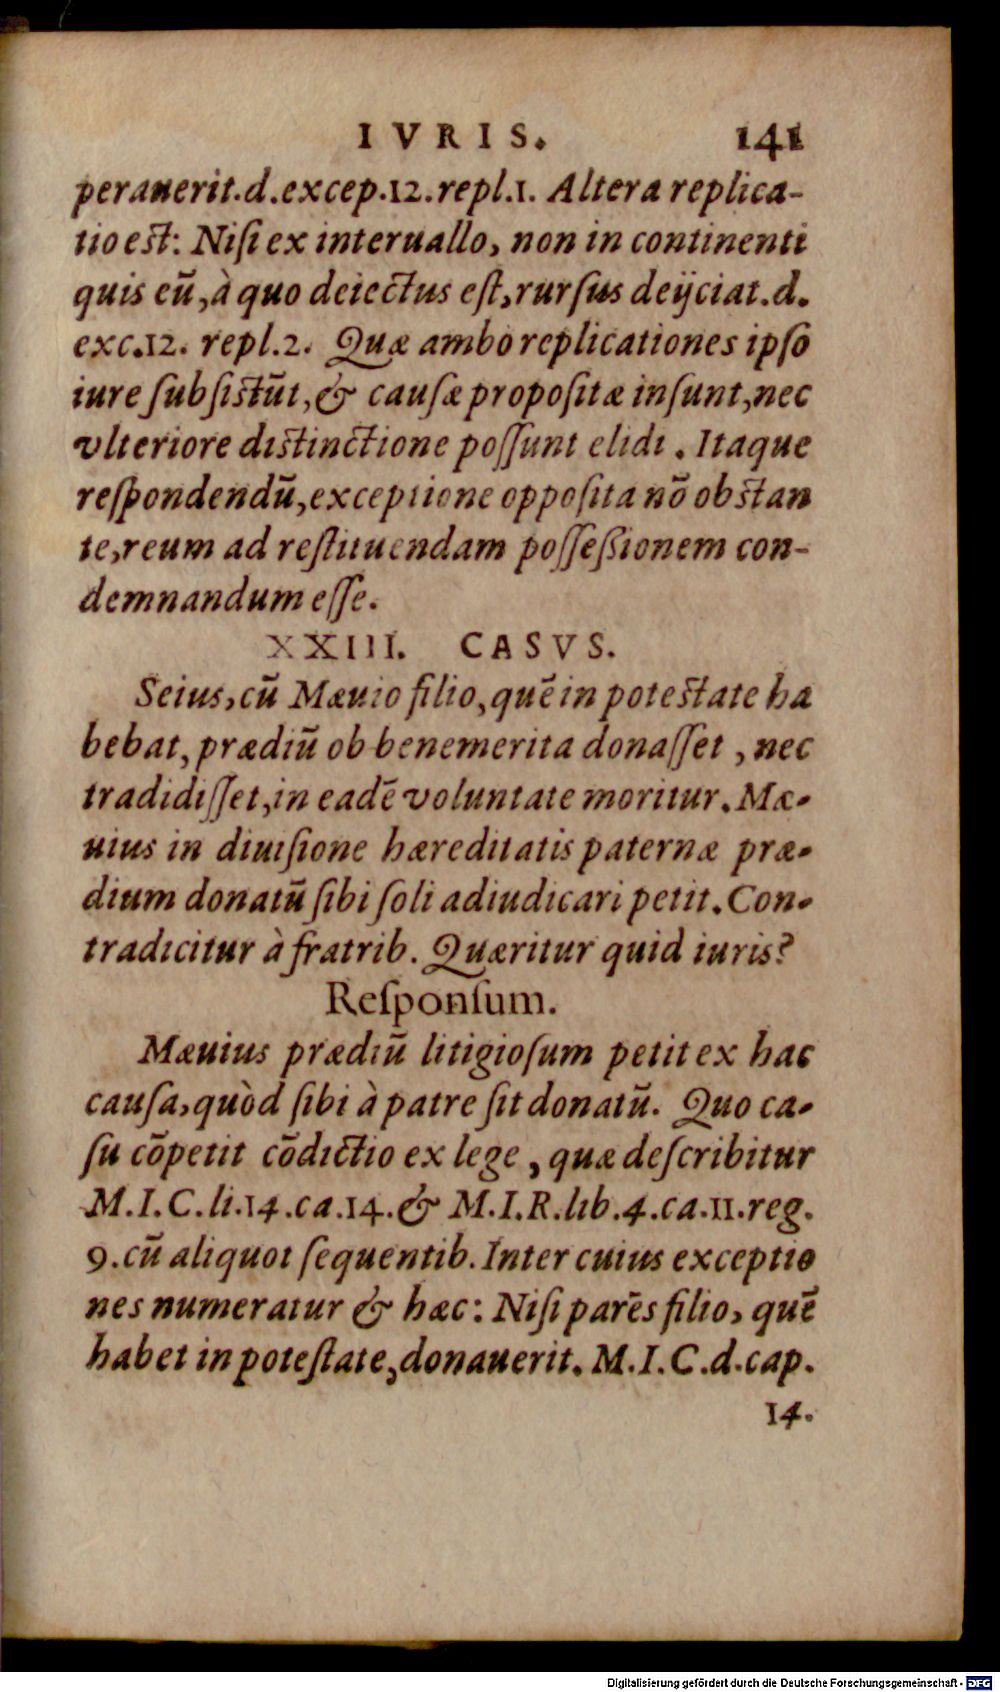 IVRIS. 141
perauerit.d.excep.12.repl.1. Altera replica-
tio est: Nisi ex interuallo, non in continenti
quis eũ, à quo deiectus est, rursus deijciat.d.
exc.12. repl.2. Quæ ambo replicationes ipso
iure subsistũt, & causæ propositæ insunt, nec
vlteriore distinctione possunt elidi. Itaque
respondendũ, exceptione opposita nõ obstan
te, reum ad restituendam possessionem con-
demnandum esse.
XXIII. CASVS.
Seius, cũ Mæuio filio, quẽ in potestate ha
bebat, prædiũ ob benemerita donasset, nec
tradidisset, in eadẽ voluntate moritur. Mæ-
uius in diuisione hæreditatis paternæ præ-
dium donatũ sibi soli adiudicari petit. Con-
tradicitur à fratrib. Quæritur quid iuris?
Responsum.
Mæuius prædiũ litigiosum petit ex hac
causa, quòd sibi à patre sit donatũ. Quo ca-
su cõpetit cõdictio ex lege, quæ describitur
M.I.C.li.14.ca.14.& M.I.R.lib.4.ca.11.reg.
9.cũ aliquot sequentib. Inter cuius exceptio
nes numeratur & hæc: Nisi parẽs filio, quẽ
habet in potestate, donauerit. M.I.C.d.cap.
14.
Digitalisierung gefördert durch die Deutsche Forschungsgemeinschaft - DFG